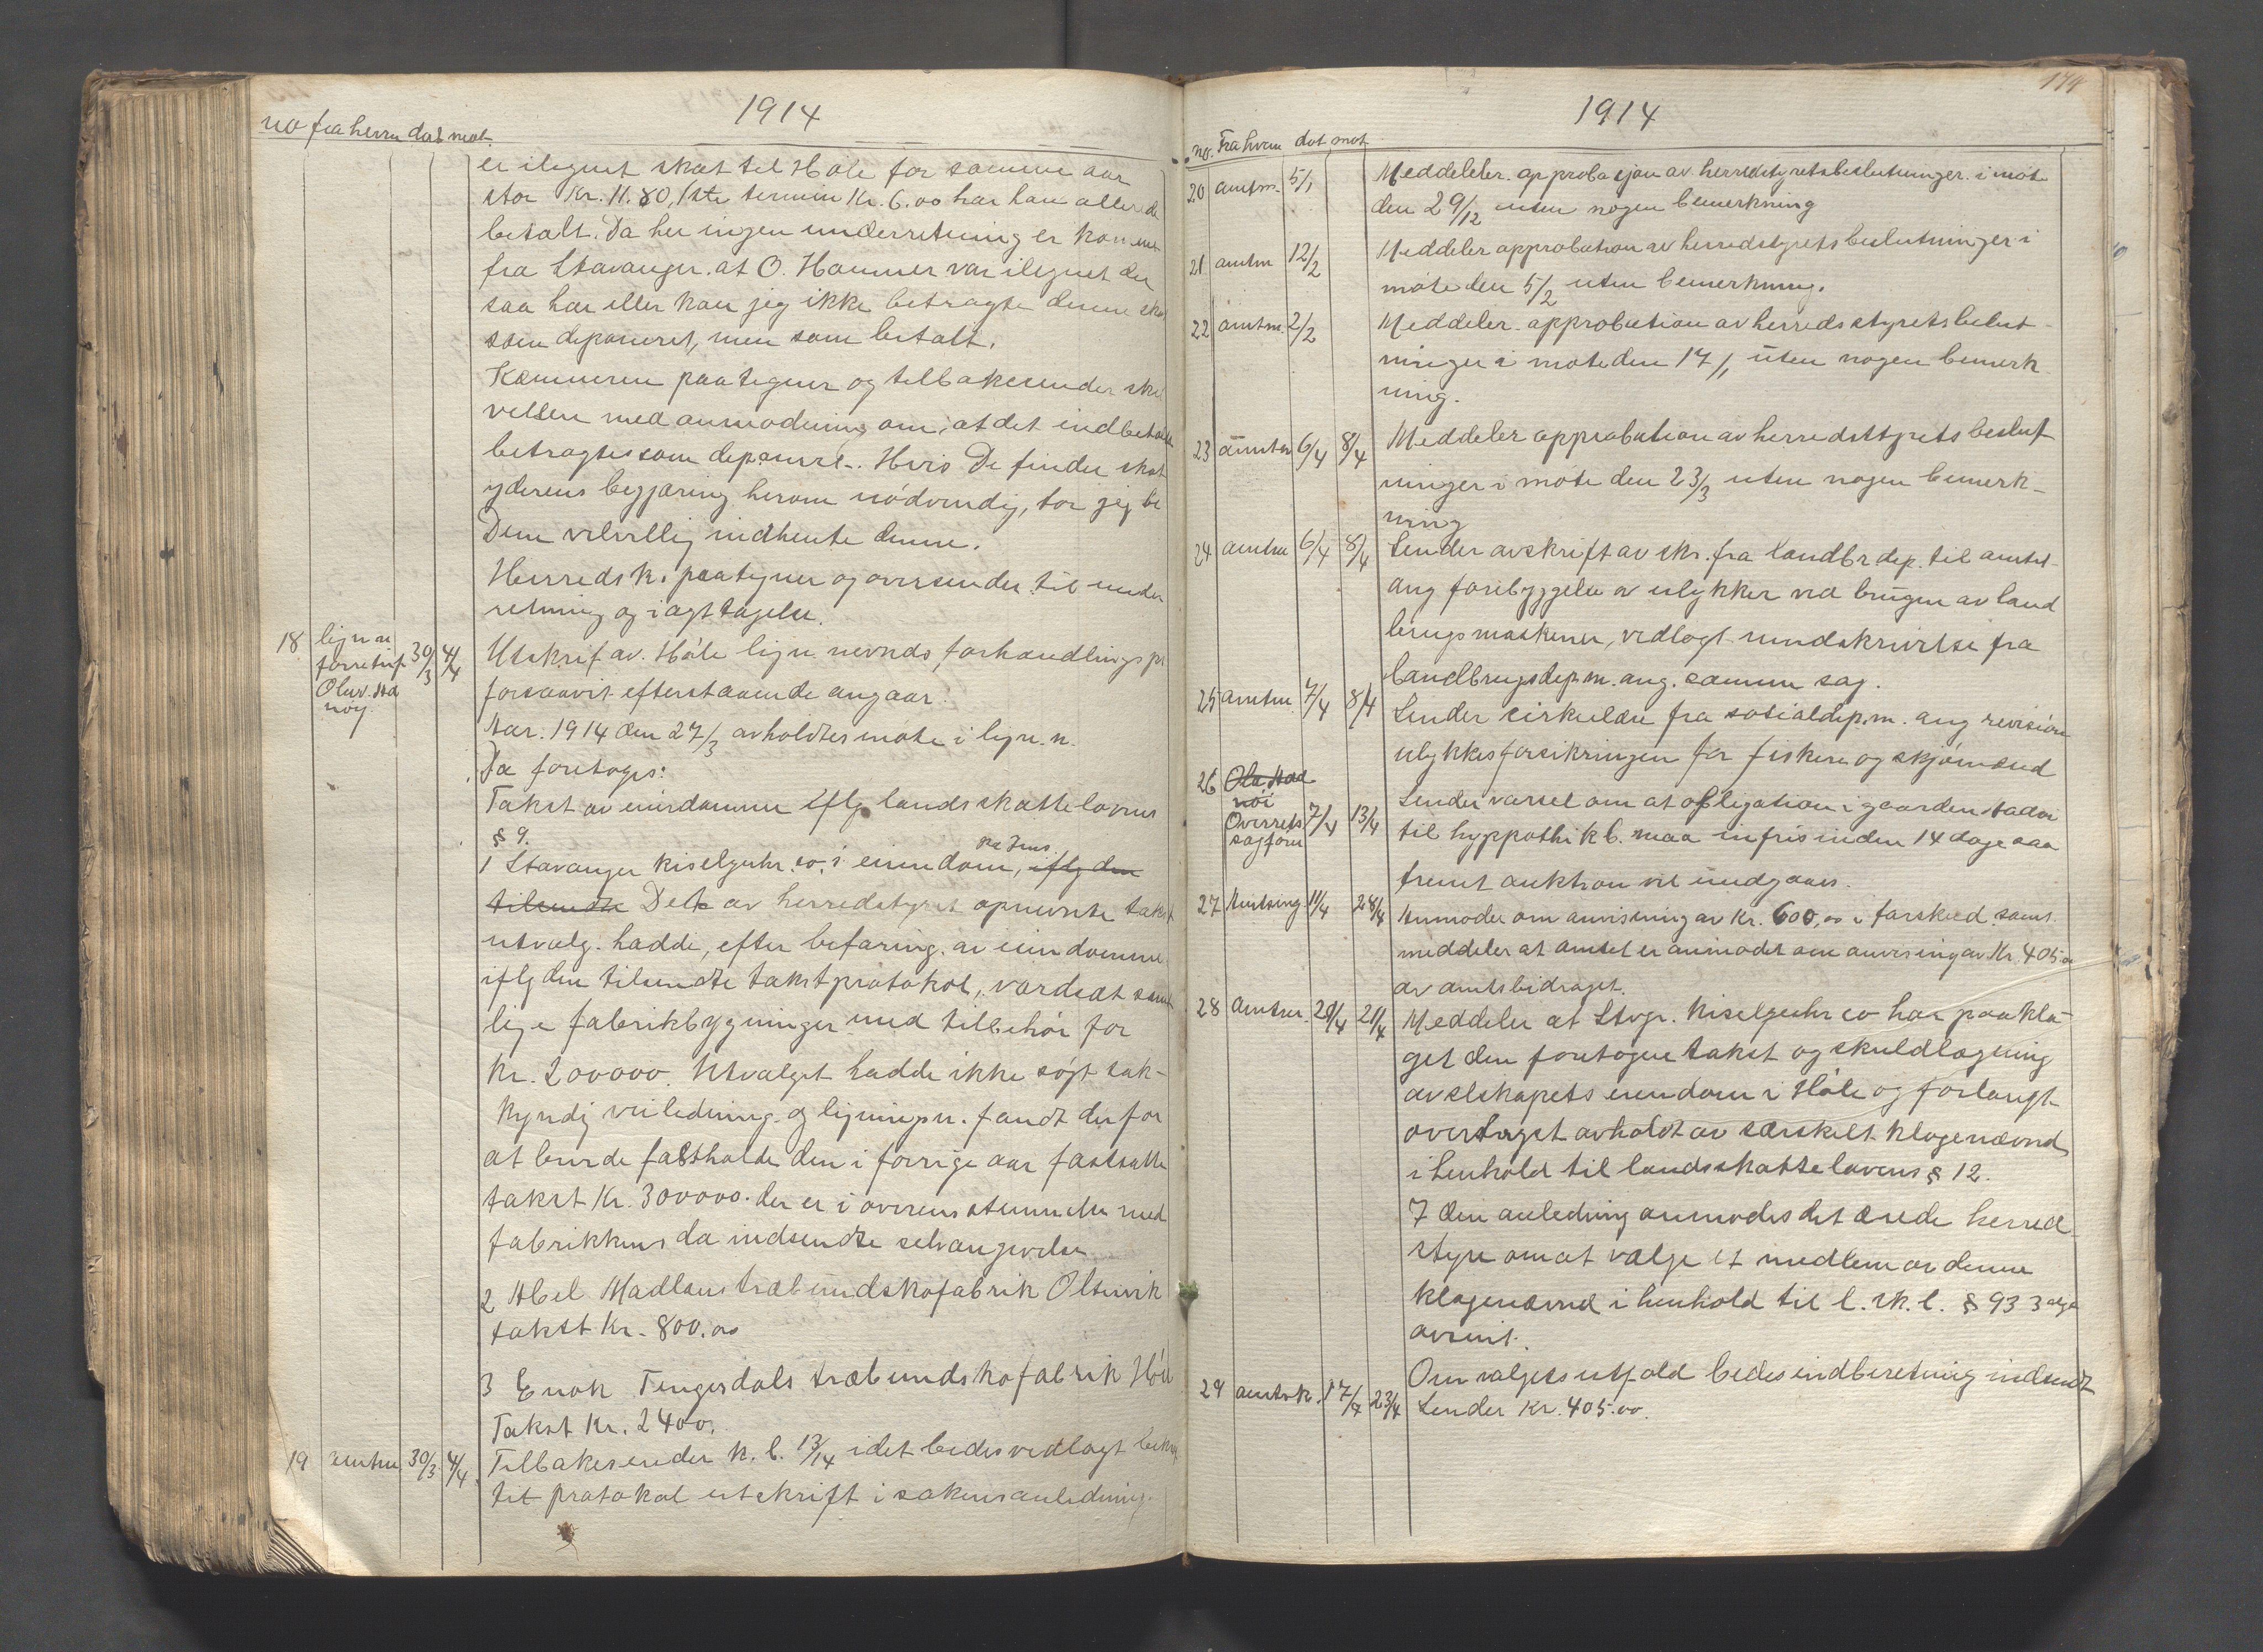 1914
no fra hvem dat mot.
er ilignet skat til Høle for samme aar
stor Kr. 11.80, 1ste termin Kr. 6.00 har han allerede
betalt. Da her ingen underretning er kommet
fra Stavanger at O. Hammer var ilignet der
saa har eller kan jeg ikke betragte denne skat
som deponeret, men som betalt.
Kæmneren paategner og tilbakesender skri
velsen med anmodning om, at det indbetalte
betragtes som deponeret. Hvis De finder skat
yderens begjæring herom nødvendig, tør jeg be
Dem velvillig indhente denne.
Herredsk. paategner og oversender til under
retning og iagttagelse.
18 lign. n. forretnf. Oluv. Hanøy 30/3 4/4 Utskrif av Høle lign. nevnds forhandlingspr
forsaavit efterstaaende angaar:
Aar. 1914 den 27/3 avholdtes møte i lign. n.
Da foretoges:
Takst av eiendomme iflg landsskattelovens
§ 9.
1 Stavanger kiselguhr. co.s eiendom, iflg den
tilsendte Dette av herredstyret opnevnte takst
utvalg. hadde, efter befaring. av eiendomme
iflg den tilsendte takstprotokol, værdsat samt
lige fabrikbygninger med tilbehør for
Kr. 200000. Utvalget hadde ikke søgt sak-
kyndig veiledning. og ligningsn. fandt derfor
at burde fastholde den i forrige aar fastsatte
takst Kr. 300000. der er i overensstemmelse med
fabrikkens da indsendte selvangivelse
2 Abel Madlans træbundskofabrik Oltesvik
takst Kr. 800.00
3 Enok Tengesdals træbundskofabrik Høle
Takst Kr. 2400.
19 amtm. 30/3 4/4 Tilbakesender k. b. 13/14 idet bedes vedlagt
til protokol utskrift i sakens anledning.
174
1914
no. Fra hvem dat mot
20 amtm. 5/1 Meddeleler. approbasjon av herredstyretsbeslutninger. i møte
den 29/12 uten nogen bemerkning
21 amtm 12/2 Meddeler approbation av herredstyrets beslutninger i
møte den 5/2 uten bemerkning.
22 amtm. 2/2 Meddeler. approbation av herredsstyrets belut
ninger i møte den 17/1 uten nogen bemerk
ning.
23 amtm 6/4 8/4 Meddeler approbation av herredsstyrets beslut
ninger i møte den 23/3 uten nogen bemerk-
ning
24 amtm 6/4 8/4 Sender avskrift av skr. fra landbr dep. til amtet
ang forebyggelse av ulykker ved brugen av land
brugsmaskener, vedlagt rundskrivelse fra
landbrugsdep.m. ang. samme sag.
25 amtm. 7/4 8/4 Sender cirkulære fra sosialdep.m. ang revision
ulykkesforsikringen for fiskere og sjømænd
26 Ola Hanøi Overrets sagføre 7/4 13/4 Sender varsel om at obligation i gaarden Hadøi
til hyppothikb. maa infris inden 14 dage saa
fremt auktion vil undgaaes.
27 Amtsing. 11/4 28/4 Anmoder om anvisning av Kr. 600,00 i forskud samt
meddeler at amtet er anmodet om anvisning av Kr. 405.00
av amtsbidraget.
28 Amtm. 20/4 21/4 Meddeler at Stvgr. Kiselguhr co har paakla-
get den foretagne takst og skuldlægning
av selskapets eiendom i Høle og forlangt
overtagst avholdt av særskilt klagenævnd
i henhold til landsskattelovens § 12.
I den anledning anmodes det ærede herred
styre om at vælge et medlem av denne
klagenævnd i henhold til l. sk. l. § 93 3dje
avsnit.
Om valgets utfald bedes indberetning indsendt
29 amtsk. 17/4 23/4 Sender Kr. 405.00.